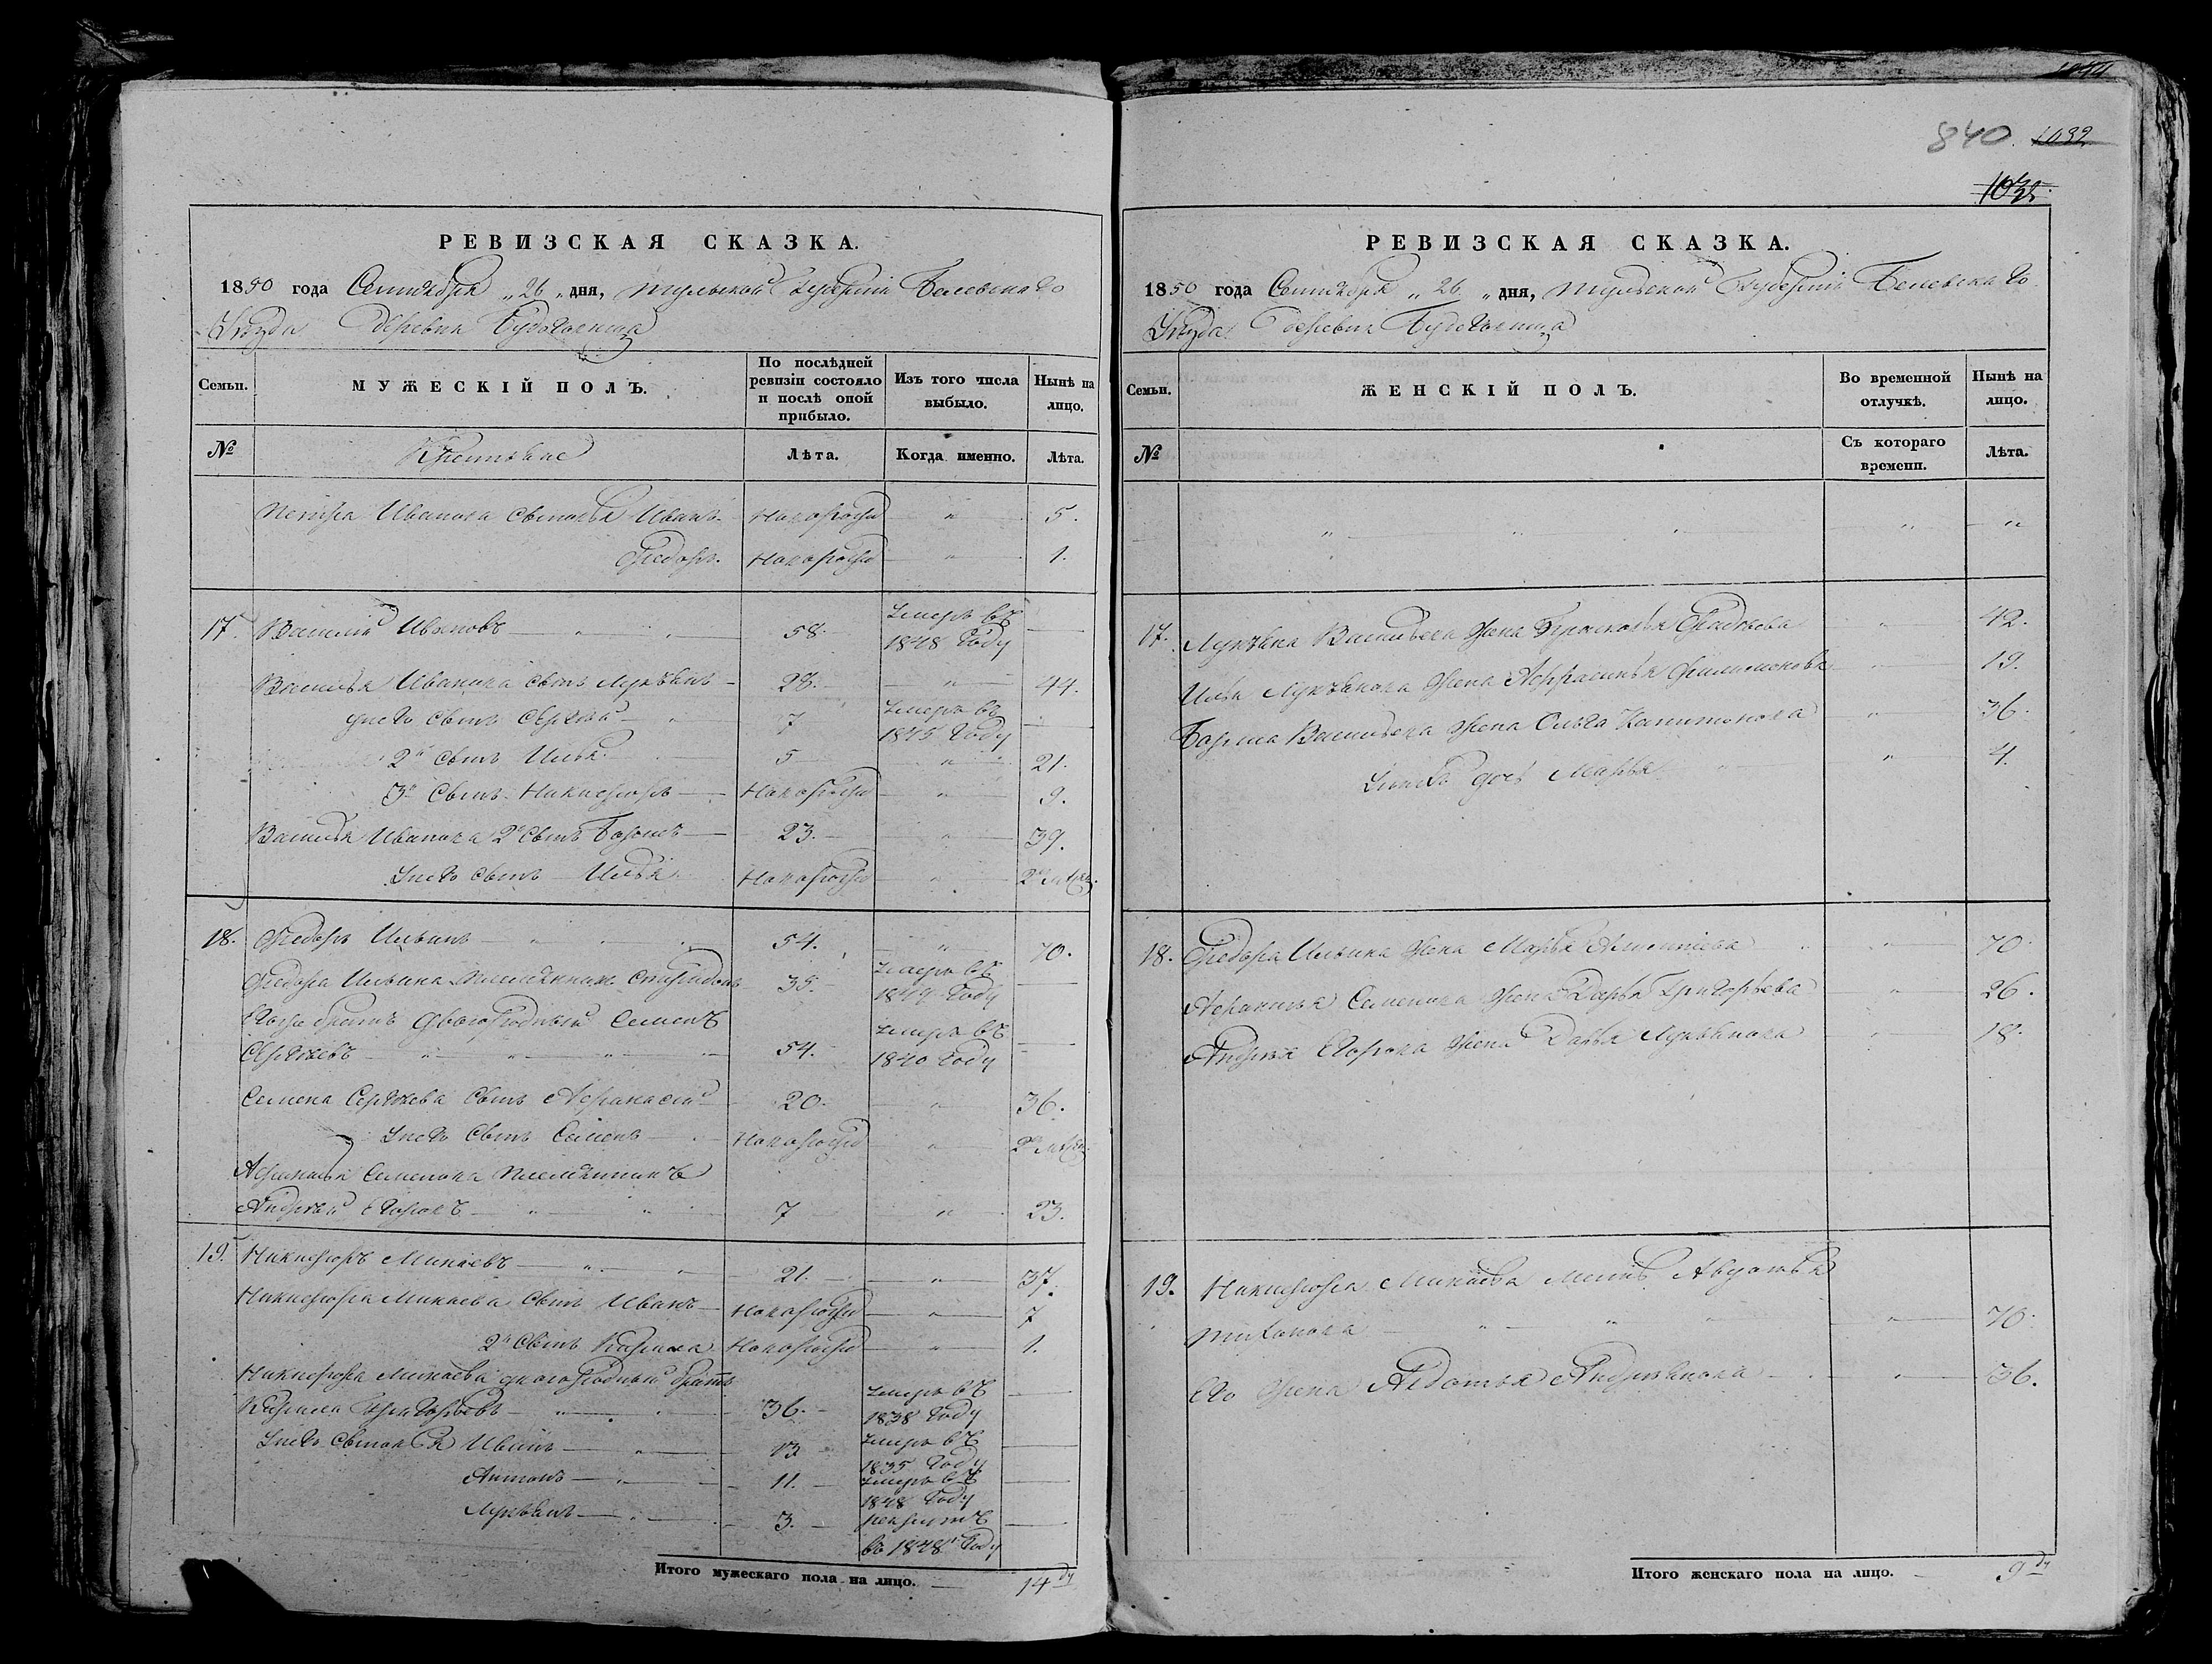 840. 1032
1032
РЕВИЗСКАЯ СКАЗКА.
1850 года Сентября „26„ дня, Тульской Губернiи Белевскаго
Уѣзда Деревни
Семьи.
МУЖЕСКІЙ ПОЛЪ.
По послѣдней ревизіи состояло и послѣ оной прибыло.
Изъ того числа выбыло.
Нынѣ на лицо.
№
Крестьяне
Лѣта.
Когда именно.
Лѣта.
Петра Иванова сыновья Иванъ Новорожд „ 5.
Федоръ. Новорожд „ 1.
17. Василій Ивановъ 58. Умеръ въ
1848 Году
Василья Иванова сынъ Лукьянъ 28. „ 44.
Унего сынъ Сергей 7 Умеръ въ
1845 Году
2й сынъ Илья 5 „ 21.
3й Сынъ Никифоръ Новорожд „ 9.
Василья Иванова 2й сынъ 23. „ 39.
Унего сынъ Илья Новорожд „ 2
18. Федоръ Ильинъ 54. „ 70.
Федора Ильина племянникъ Спиридонъ 35. Умеръ въ
Году
Егоже братъ двоюродный Семенъ Умеръ въ
Сергѣевъ 54. 1840 Году
Семена Сергѣева сынъ Афанасій 20. „ 36.
Унего Сынъ Семенъ Новорожд „ 2
Афанасья Семенова племянникъ
Андрей Егоровъ 7 „ 23.
19. Никифоръ Минаевъ 21. „ 37.
Никифора Минаева Сынъ Иванъ Новорожд „ 7
2й Сынъ Новорожд „ 1.
Никифора Минаева двоюродный братъ Умеръ въ
Григорьевъ 36. 1838 Году
Унего сыновья Иванъ 13 Умеръ въ
1835 Году
Антонъ 11. Умеръ въ
1848 Году
Лукьянъ 3. рекрутъ
въ 1848 Году
Итого мужескаго пола на лицо. 14
РЕВИЗСКАЯ СКАЗКА.
1850 года Сентября „ 26 „ дня, Тульской Губерніи Белевскаго
Уѣзда Деревни
Семьи.
ЖЕНСКІЙ ПОЛЪ.
Во временной отлучкѣ.
Нынѣ на лицо.
№
Съ котораго времени.
Лѣта.
„ „ „ „ „
17. Лукьяна Васильева жена Прасковья „ 42.
Ильи Лукьянова жена Афросинья Филимонова 19.
Васильева жена Ольга Капитонова „ 36.
Унихъ дочь Марья „ 4.
18. Федора Ильина жена Марья „ 70
Афанасья Семенова жена Дарья Григорьева „ 26.
Андрея Егорова жена Дарья Лукьянова „ 18.
19. Никифора Минаева мать Авдотья
Тихонова „ 70.
Его жена Авдотья Андреянова „ 36.
Итого женскаго пола на лицо. 9